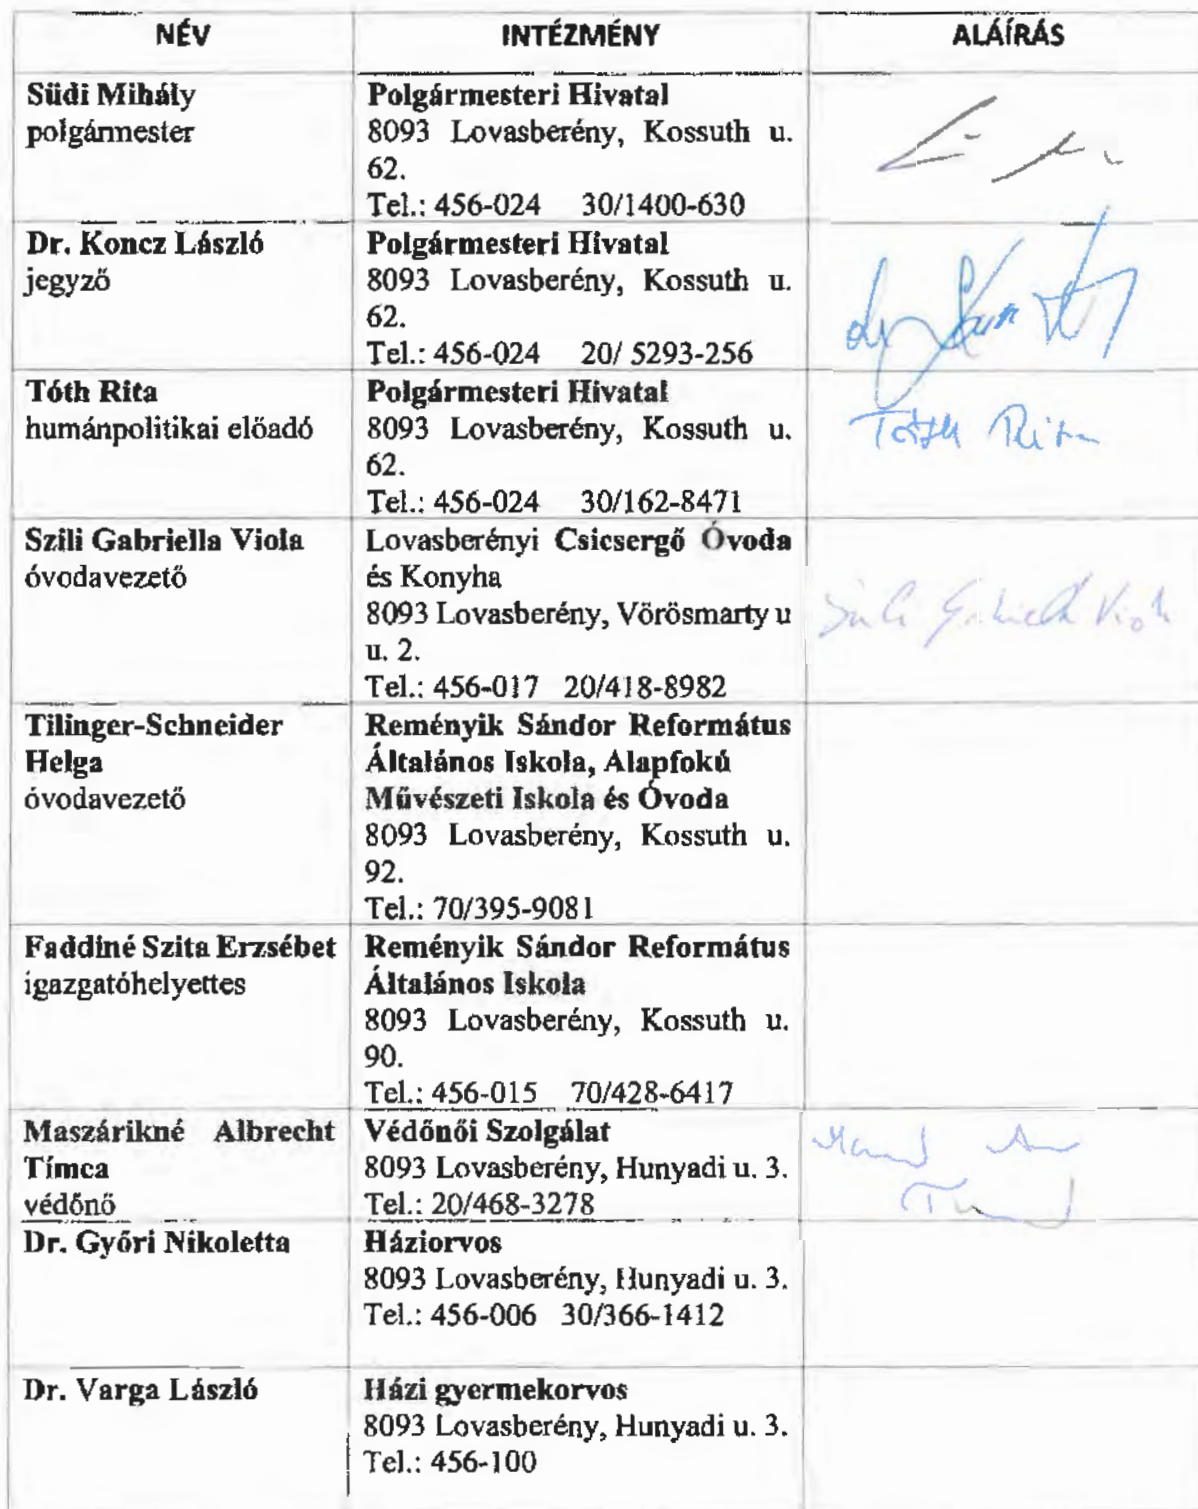 NÉV INTÉZMÉNY ALÁÍRÁS
Südi Mihály
polgármester
Polgármesteri Hivatal
8093 Lovasberény, Kossuth u.
62.
Tel.: 456-024 30/1400-630
Dr. Koncz László
jegyző
Polgármesteri Hivatal
8093 Lovasberény, Kossuth u.
62.
Tel.: 456-024 20/ 5293-256
Tóth Rita
humánpolitikai előadó
Polgármesteri Hivatal
8093 Lovasberény, Kossuth u.
62.
Tel.: 456-024 30/162-8471
Tóth Rita
Szili Gabriella Viola
óvodavezető
Lovasberényi Csicsergő Óvoda
és Konyha
8093 Lovasberény, Vörösmarty u
u. 2.
Tel.: 456-017 20/418-8982
Szili Gabriella Viola
Tilinger-Schneider
Helga
óvodavezető
Reményik Sándor Református
Általános Iskola, Alapfokú
Művészeti Iskola és Óvoda
8093 Lovasberény, Kossuth u.
92.
Tel.: 70/395-9081
Faddiné Szita Erzsébet
igazgatóhelyettes
Reményik Sándor Református
Általános Iskola
8093 Lovasberény, Kossuth u.
90.
Tel.: 456-015 70/428-6417
Maszárikné Albrecht
Tímea
védőnő
Védőnői Szolgálat
8093 Lovasberény, Hunyadi u. 3.
Tel.: 20/468-3278
Dr. Győri Nikoletta
Háziorvos
8093 Lovasberény, Hunyadi u. 3.
Tel.: 456-006 30/366-1412
Dr. Varga László
Házi gyermekorvos
8093 Lovasberény, Hunyadi u. 3.
Tel.: 456-100